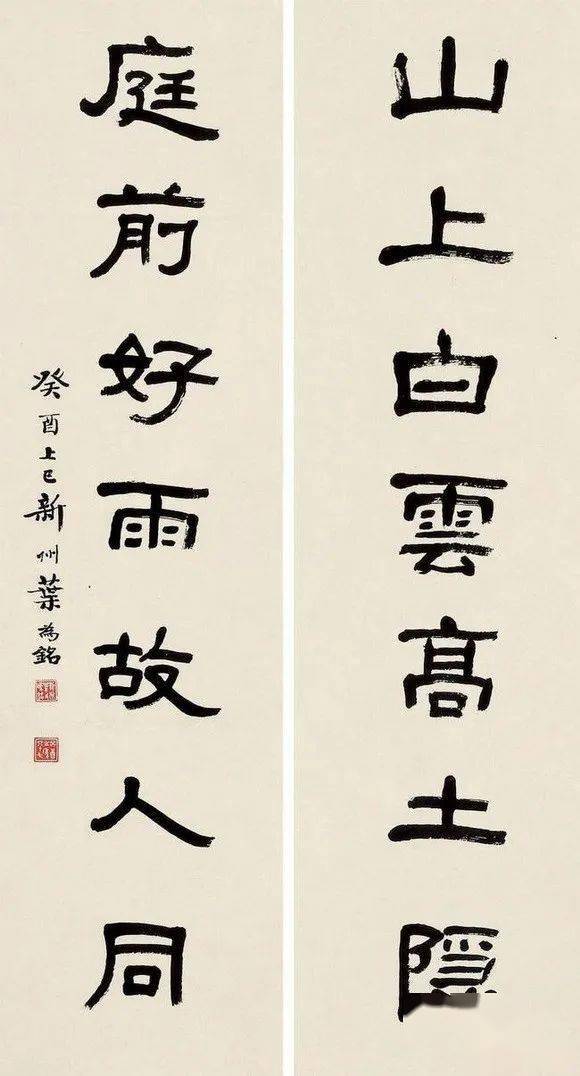 山上白雲高土隐
庭前好雨故人同
癸酉上巳新州葉為銘